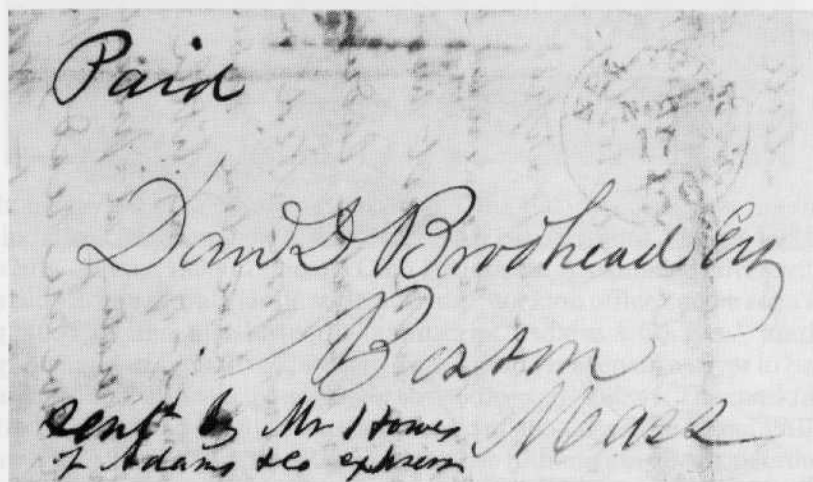 Paid
NOV
17
Danl D Brodhead Esq
Boston
Mass
sent by Mr Howes
of Adams & Co express